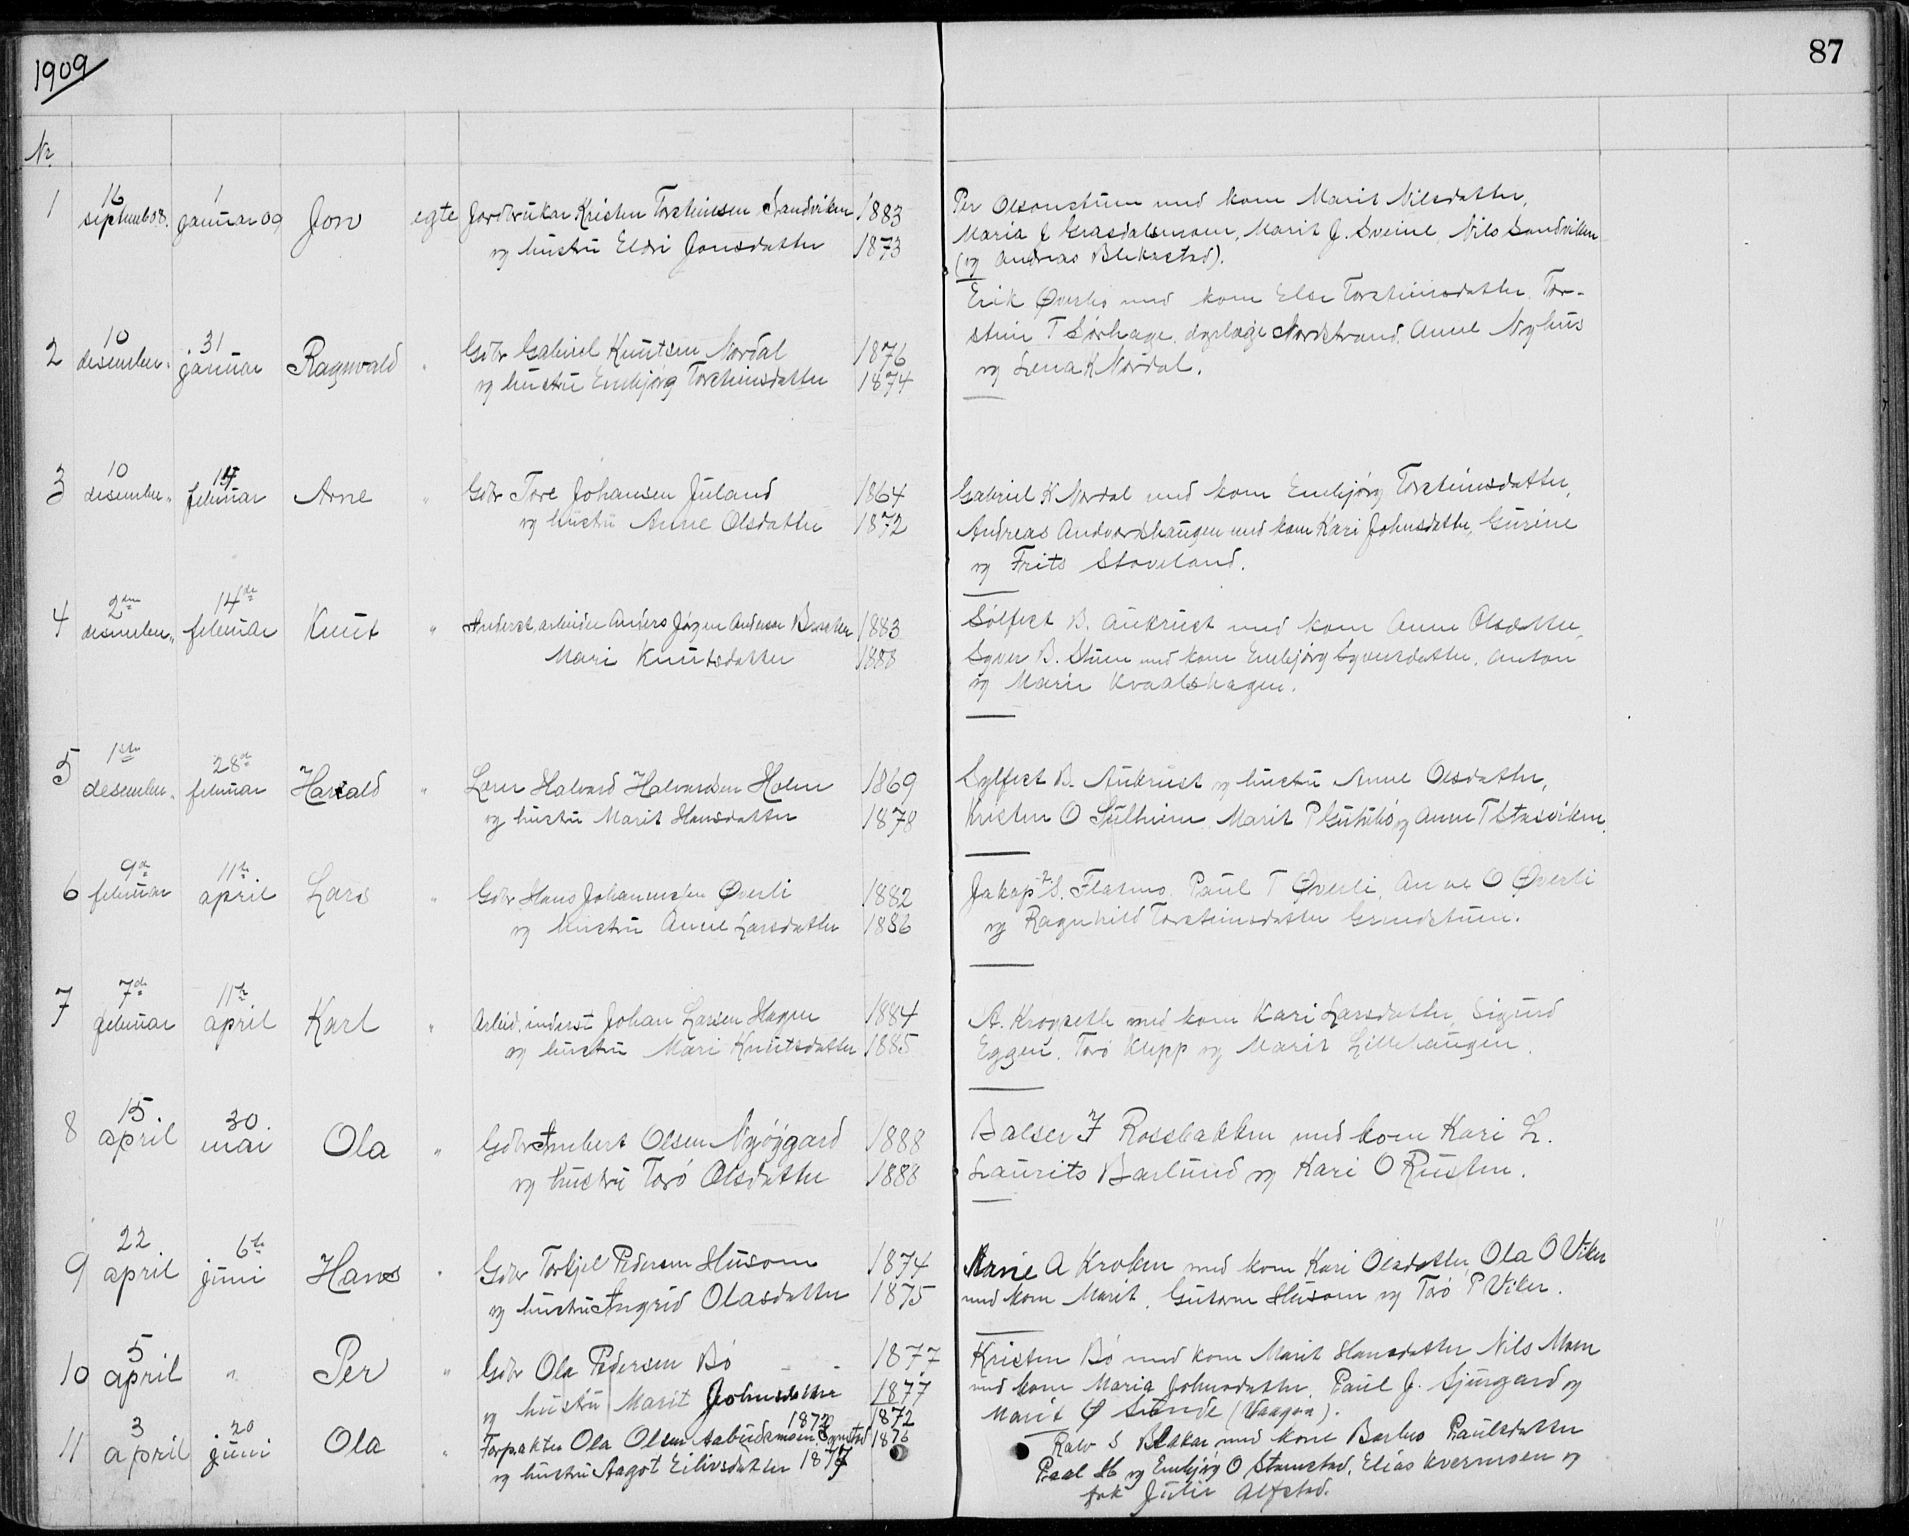 1909
87
Nr
1 16 septemb 08. 1 januar 09 Jon egte Jordbrukar Kristen Torsteinsen Sandviken 1883
og hustru Eldri Jonsdatter 1873
Per Olsonstuen med kone Marit Nilsdatter,
Maria J Grasdalsmoen, Marit J. Sveine Nils Sandviken
(og Andreas Blekastad).
2 10 desember 31 januar Ragnvald " Gdbr Gabriel Knutsen Nordal 1876
og hustru Embjørg Torsteinsdatter 1874
Erik Øverbø med kone Else Torsteinsdatter, Tor-
stein T Sørhage, dyrlæge Nordstrand, Anne Nyhus
og Lena K Nordal.
3 10 desember " 14 februar Arne " Gdbr Tore Johansen Juland 1864
og hustru Anne Olsdatter 1872
Gabriel K Nordal med kone Embjørg Torsteinsdatter,
Andreas Andvordshaugen med kone Kari Johnsdatter, Gurine
og Frits Staveland.
4 2den desember " 14de februar Knut " Inderst, arbeider Anders Jørgen Andersen 1883
Mari Knutsdatter 1888
Sølfest B. Aukrust med kone Anne Olsdatter,
Syver B. Stuen med kone Embjørg Syversdatter, Anton
og Marie Kvaalshagen.
5 1ste desember " 28de februar Harald " Lærer Halvard Halvardsen Holen 1869
og hustru Marit Hansdatter 1878
Sylfest B. Aukrust og hustru Anne Olsdatter,
Kristen O Sulheim Marit P og Anne T Stasviken
6 9de februar 11te april Lars " Gdbr Hans Johannesen Øverli 1882
og hustru Anne Larsdatter 1886
Jakop S. Flatmo, Paul T Øverli, Anne O Øverli
og Ragnhild Torsteinsdatter Grindstuen.
7 7de februar 11te april Karl " Arbeid, inderst Johan Larsen Hagen 1884
og hustru Mari Knutsdatter 1885
A. Krogseth med kone Kari Larsdatter, Sigurd
Eggen, Torø Klipp og Marit Lillehaugen.
8 15 april 30 mai Ola " Gdbr Embert Olsen Nyøygard 1888
og hustru Torø Olsdatter 1888
Balser J Rossbakken med kone Kari L.
Laurits Barlund og Kari O Rusten.
9 22 april 6te juni Hans " Gdbr Torkjel Pedersen Husom 1874
og hustru Ingrid Olasdatter 1875
Arne A Kroken med kone Kari Olsdatter, Ola O Viker
med kone Marit, Gutorm Husom og Torø P Viker.
10 5 april " Per " Gdbr Ola Pedersen Bø 1877
og hustru Marit Johnsdatter 1877
Kristen Bø med kone Marit Hansdatter Nils Moen
med kone Maria Johnsdatter, Paul J. Sjurgard og
Marit Ø Sunde (Vaagaa).
11 3 april 20 juni Ola " Forpakter Ola Olsen 1872
og hustru Aagot Eilivsdatter 1877 1876
S Blakar med kone Barbro Paulsdatter
og Embjørg O Stamstad, Elias Kvernmoen og
frk Julie Alfstad.